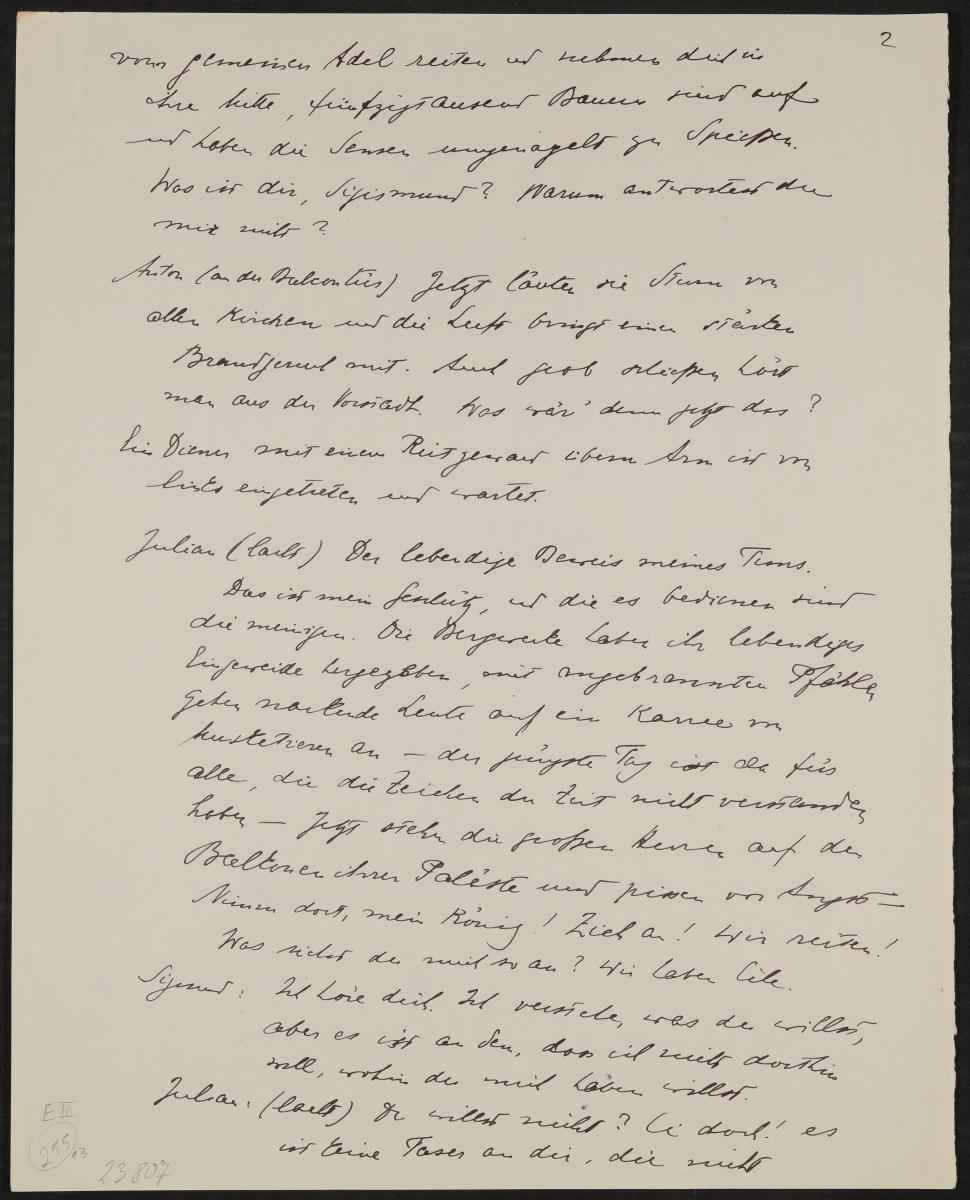 2
vom gemeinen Adel reiten und nehmen dich in
ihre Mitte, fünfzigtausend Bauern sind auf
und haben die Sensen umgenagelt zu Spießen.
Was ist dir, Sigismund? Warum antwortest du
mir nicht?
Anton (an der Balcontür) Jetzt läuten sie Sturm von
allen Kirchen und die Luft bringt einen starken
Brandgeruch mit. Auch grob schießen hört
man aus der Vorstadt. Was wär' denn jetzt das?
Ein Diener mit einem Reitgewand überm Arm ist von
links eingetreten und wartet.
Julian (lacht) Der lebendige Beweis meines Tuns.
Das ist mein Geschütz, und die es bedienen sind
die meinigen. Die Bergwerke haben ihr lebendiges
Eingeweide hergegeben, mit angebrannten Pfählen
gehen nackende Leute auf ein Karree von
Musketieren an – der jüngste Tag ist da für
alle, die die Zeichen der Zeit nicht verstanden
haben – Jetzt stehn die großen Herren auf den
Balkonen ihrer Paläste und pissen vor Angst –
Nimm dort, mein König! Zieh an! Wir reiten!
Was siehst du mich so an? Wir haben Eile.
Sigmund: Ich höre dich. Ich verstehe, was du willst,
aber es ist an den, dass ich nicht dorthin
will, wohin du mich haben willst.
Julian: (lacht) Du willst nicht? Ei doch! es
ist keine Faser an dir, die nicht
E III
255
13
23807